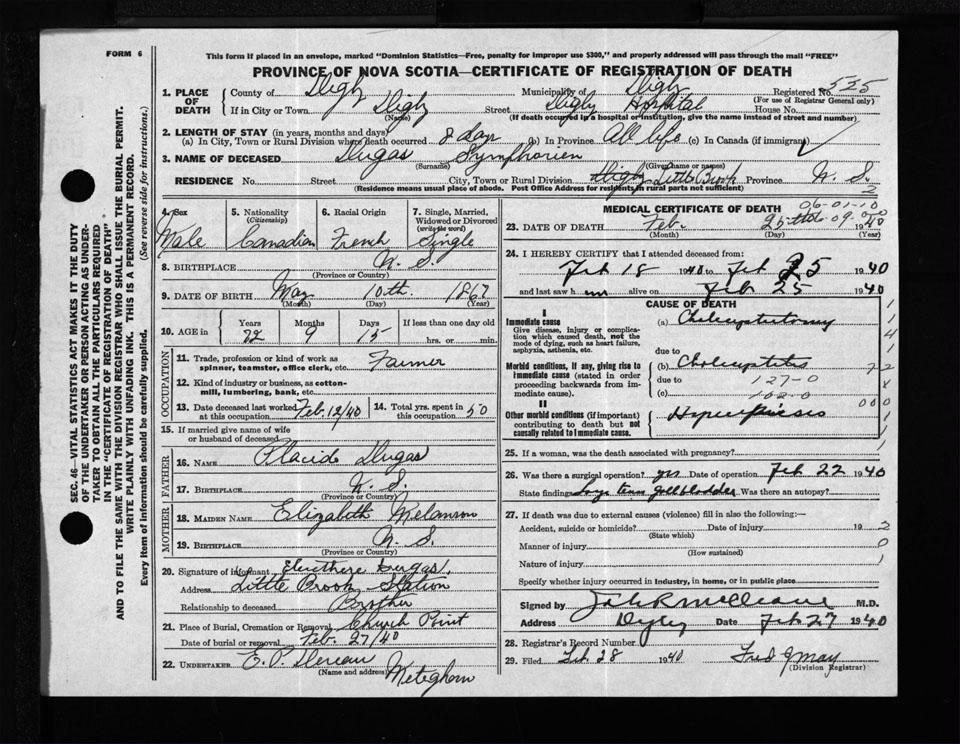 FORM 6
This form if placed in an envelope, marked "Dominion Statistics—Free, penalty for improper use $300," and properly addressed will pass through the mail "FREE"
PROVINCE OF NOVA SCOTIA—CERTIFICATE OF REGISTRATION OF DEATH
SEC. 46—VITAL STATISTICS ACT MAKES IT THE DUTY
OF THE UNDERTAKER OR PERSON ACTING AS UNDER-
TAKER TO OBTAIN ALL THE PARTICULARS REQUIRED
IN THE "CERTIFICATE OF REGISTRATION OF DEATH"
AND TO FILE THE SAME WITH THE DIVISION REGISTRAR WHO SHALL ISSUE THE BURIAL PERMIT.
WRITE PLAINLY WITH UNFADING INK. THIS IS A PERMANENT RECORD.
Every item of information should be carefully supplied. (See reverse side for instructions.)
1. PLACE OF DEATH County of Digby Municipality of Digby Registered No. 535
(For use of Registrar General only)
If in City or Town Digby Street Digby Hospital House No.
(Name) (If death occurred in a hospital or institution, give the name instead of street and number)
2. LENGTH OF STAY (in years, months and days)
(a) In City, Town or Rural Division where death occurred 8 days (b) In Province All life (c) In Canada (if immigrant)
3. NAME OF DECEASED Dugas Symphorien
(Surname) (Given name or names)
RESIDENCE No. Street City, Town or Rural Division Digby Little Brook Province N. S.
(Residence means usual place of abode. Post Office Address for residents in rural parts not sufficient) 2
4. Sex Male
5. Nationality (Citizenship) Canadian
6. Racial Origin French
7. Single, Married, Widowed or Divorced (write the word) Single
8. BIRTHPLACE N. S.
(Province or Country)
9. DATE OF BIRTH May 10th. 1867
(Month) (Day) (Year)
10. AGE in Years 72 Months 9 Days 15 If less than one day old hrs. or min.
OCCUPATION
11. Trade, profession or kind of work as spinner, teamster, office clerk, etc. Farmer
12. Kind of industry or business, as cotton-mill, lumbering, bank, etc.
13. Date deceased last worked at this occupation Feb. 12/40
14. Total yrs. spent in this occupation 50
15. If married give name of wife or husband of deceased
FATHER
16. NAME Placide Dugas
17. BIRTHPLACE N. S.
(Province or Country)
MOTHER
18. MAIDEN NAME Elizabeth Melanson
19. BIRTHPLACE N. S.
(Province or Country)
20. Signature of informant Eleuthere Dugas,
Address Little Brook Station
Relationship to deceased Brother
21. Place of Burial, Cremation or Removal Church Point
Date of burial or removal Feb. 27/40
22. UNDERTAKER E. P. Deveau Meteghan
(Name and address)
MEDICAL CERTIFICATE OF DEATH
06-01-10
23. DATE OF DEATH Feb. 25th 1940
(Month) (Day) (Year)
24. I HEREBY CERTIFY that I attended deceased from:
Feb 18 1940 to Feb 25 1940
and last saw him alive on Feb 25 1940
CAUSE OF DEATH
I
Immediate cause
Give disease, injury or complication which caused death, not the mode of dying, such as heart failure, asphyxia, asthenia, etc.
(a) Cholecystectomy
due to
Morbid conditions, if any, giving rise to immediate cause (stated in order proceeding backwards from immediate cause).
(b) Cholecystitis
due to 127-0
(c) 102-0
II
Other morbid conditions (if important) contributing to death but not causally related to immediate cause.
25. If a woman, was the death associated with pregnancy?
26. Was there a surgical operation? yes Date of operation Feb 22 1940
State findings Large tense gallbladder Was there an autopsy?
27. If death was due to external causes (violence) fill in also the following:—
Accident, suicide or homicide? Date of injury 19
(State which)
Manner of injury
(How sustained)
Nature of injury
Specify whether injury occurred in industry, in home, or in public place
Signed by M.D.
Address Digby Date Feb 27 1940
28. Registrar's Record Number
29. Filed Feb 28 1940 Fred J May
(Division Registrar)